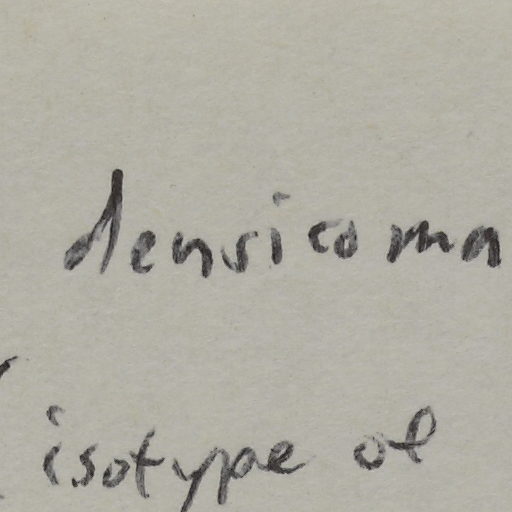 densicoma
(isotype of